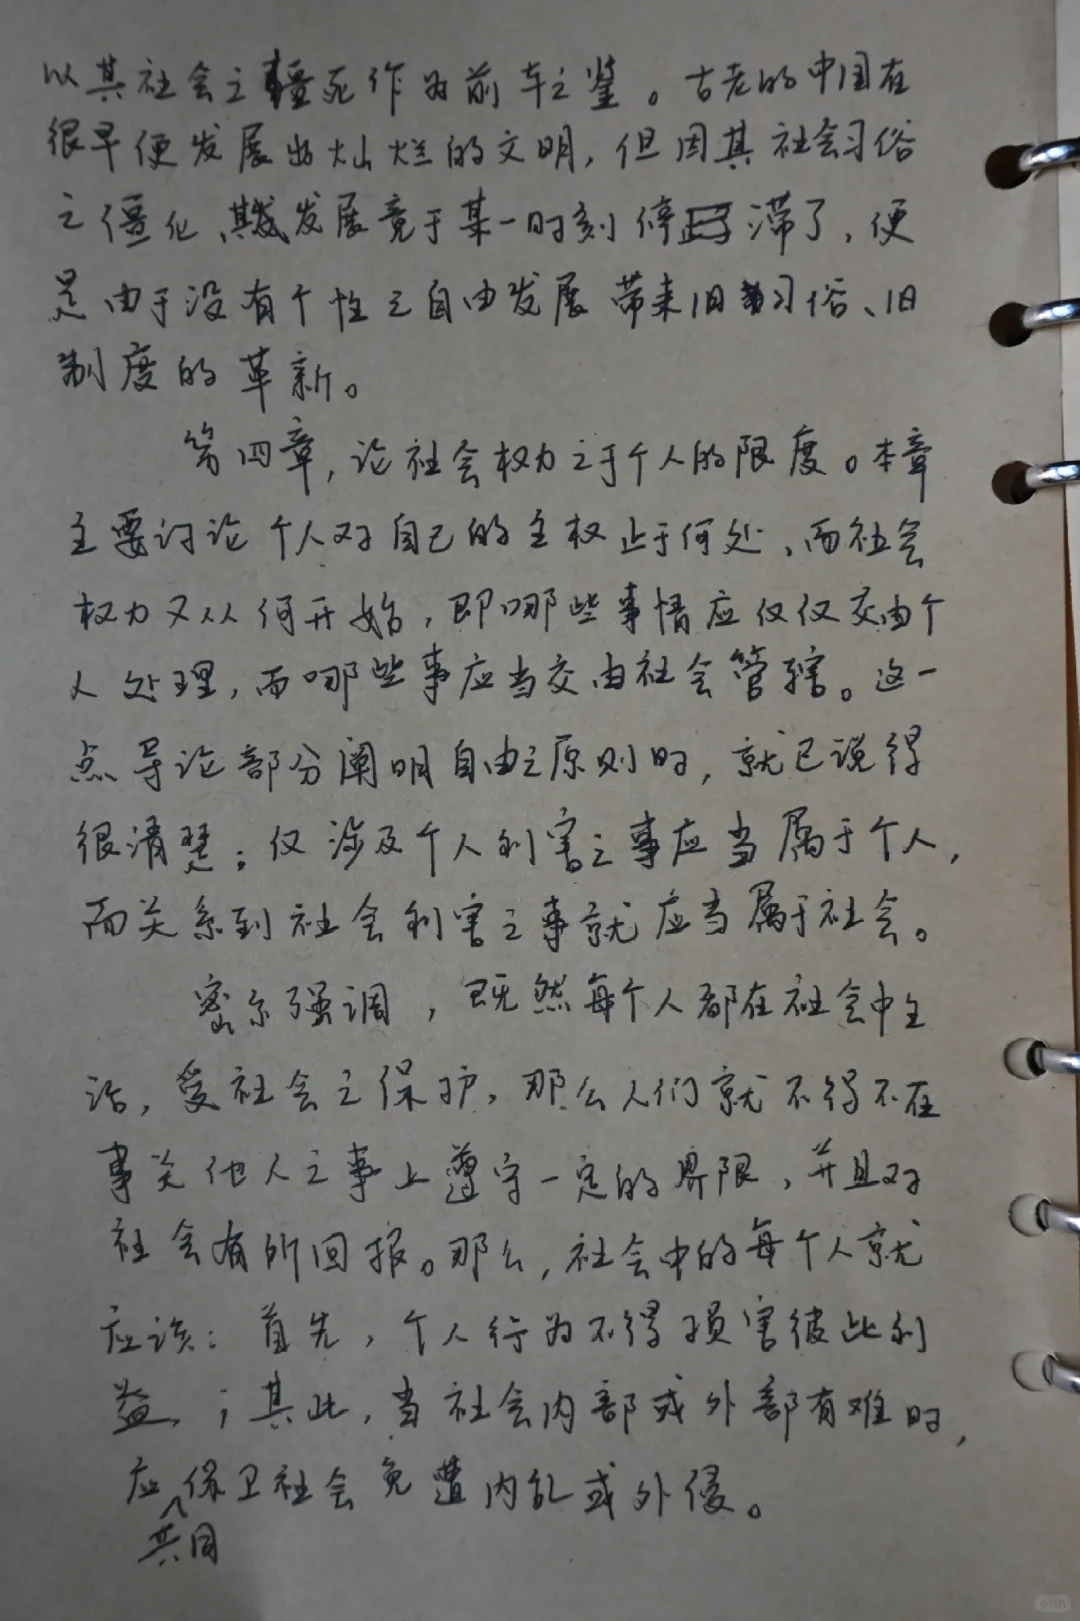 以其社会之僵死作为前车之鉴。古老的中国在
很早便发展出灿烂的文明，但因其社会习俗
之僵化，其发展竟于某一时刻停滞了，便
是由于没有个性之自由发展带来旧习俗、旧
制度的革新。
第四章，论社会权力之于个人的限度。本章
主要讨论个人对自己的主权止于何处，而社会
权力又从何开始，即哪些事情应仅仅交由个
人处理，而哪些事应当交由社会管辖。这一
点导论部分阐明自由之原则时，就已说得
很清楚：仅涉及个人利害之事应当属于个人，
而关系到社会利害之事就应当属于社会。
密尔强调，既然每个人都在社会中生
活，受社会之保护，那么人们就不得不在
事关他人之事上遵守一定的界限，并且对
社会有所回报。那么，社会中的每个人就
应该：首先，个人行为不得损害彼此利
益，；其此，当社会内部或外部有难时，
应共同保卫社会免遭内乱或外侵。